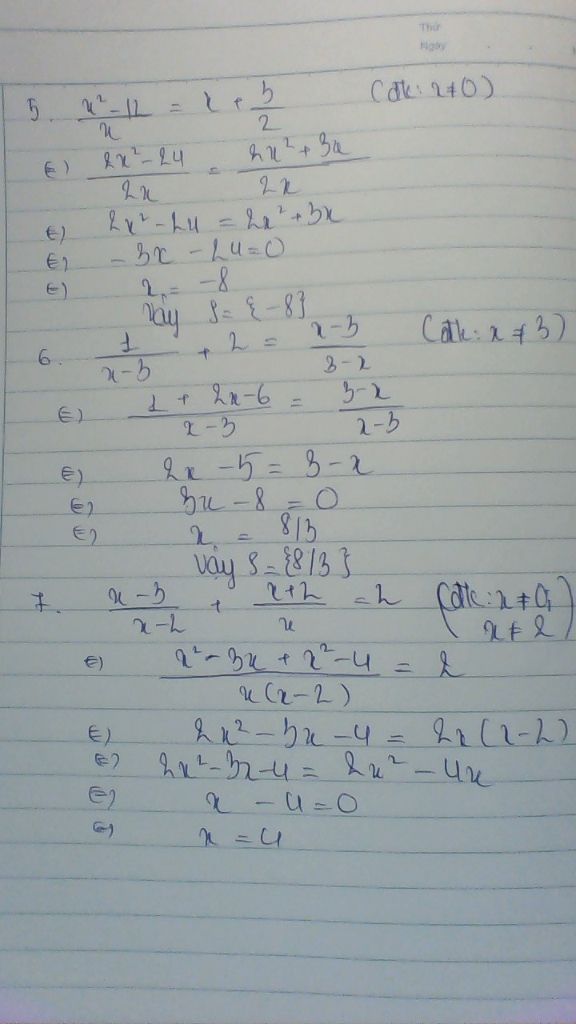 Thứ
Ngày
5. (x² - 12)/x = x + 3/2 (đk: x ≠ 0)
⇔ (2x² - 24)/2x = (2x² + 3x)/2x
⇔ 2x² - 24 = 2x² + 3x
⇔ -3x - 24 = 0
⇔ x = -8
Vậy S = {-8}
6. 1/(x-3) + 2 = (x-3)/(3-x) (đk: x ≠ 3)
⇔ (1 + 2x - 6)/(x-3) = (3-x)/(x-3)
⇔ 2x - 5 = 3 - x
⇔ 3x - 8 = 0
⇔ x = 8/3
Vậy S = {8/3}
7. (x-3)/(x-2) + (x+2)/x = 2 (đk: x ≠ 0; x ≠ 2)
⇔ (x² - 3x + x² - 4)/(x(x-2)) = 2
⇔ 2x² - 3x - 4 = 2x(x-2)
⇔ 2x² - 3x - 4 = 2x² - 4x
⇔ x - 4 = 0
⇔ x = 4